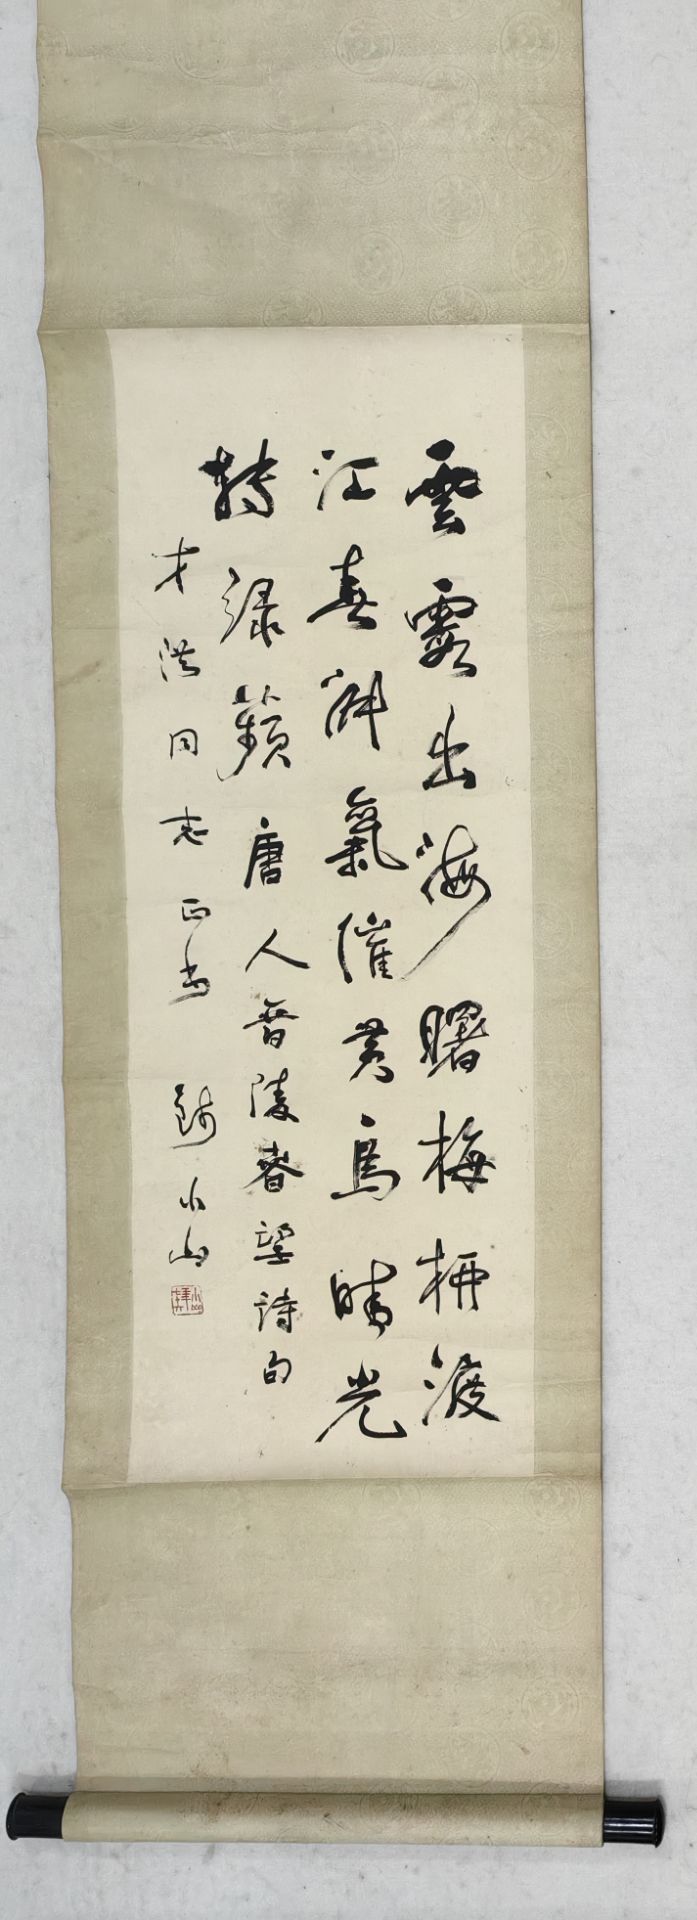 雲霞出海曙梅柳渡
江春淑氣催黄鳥晴光
轉緑蘋唐人晋陵春望詩句
才洪同志正书 钱小山